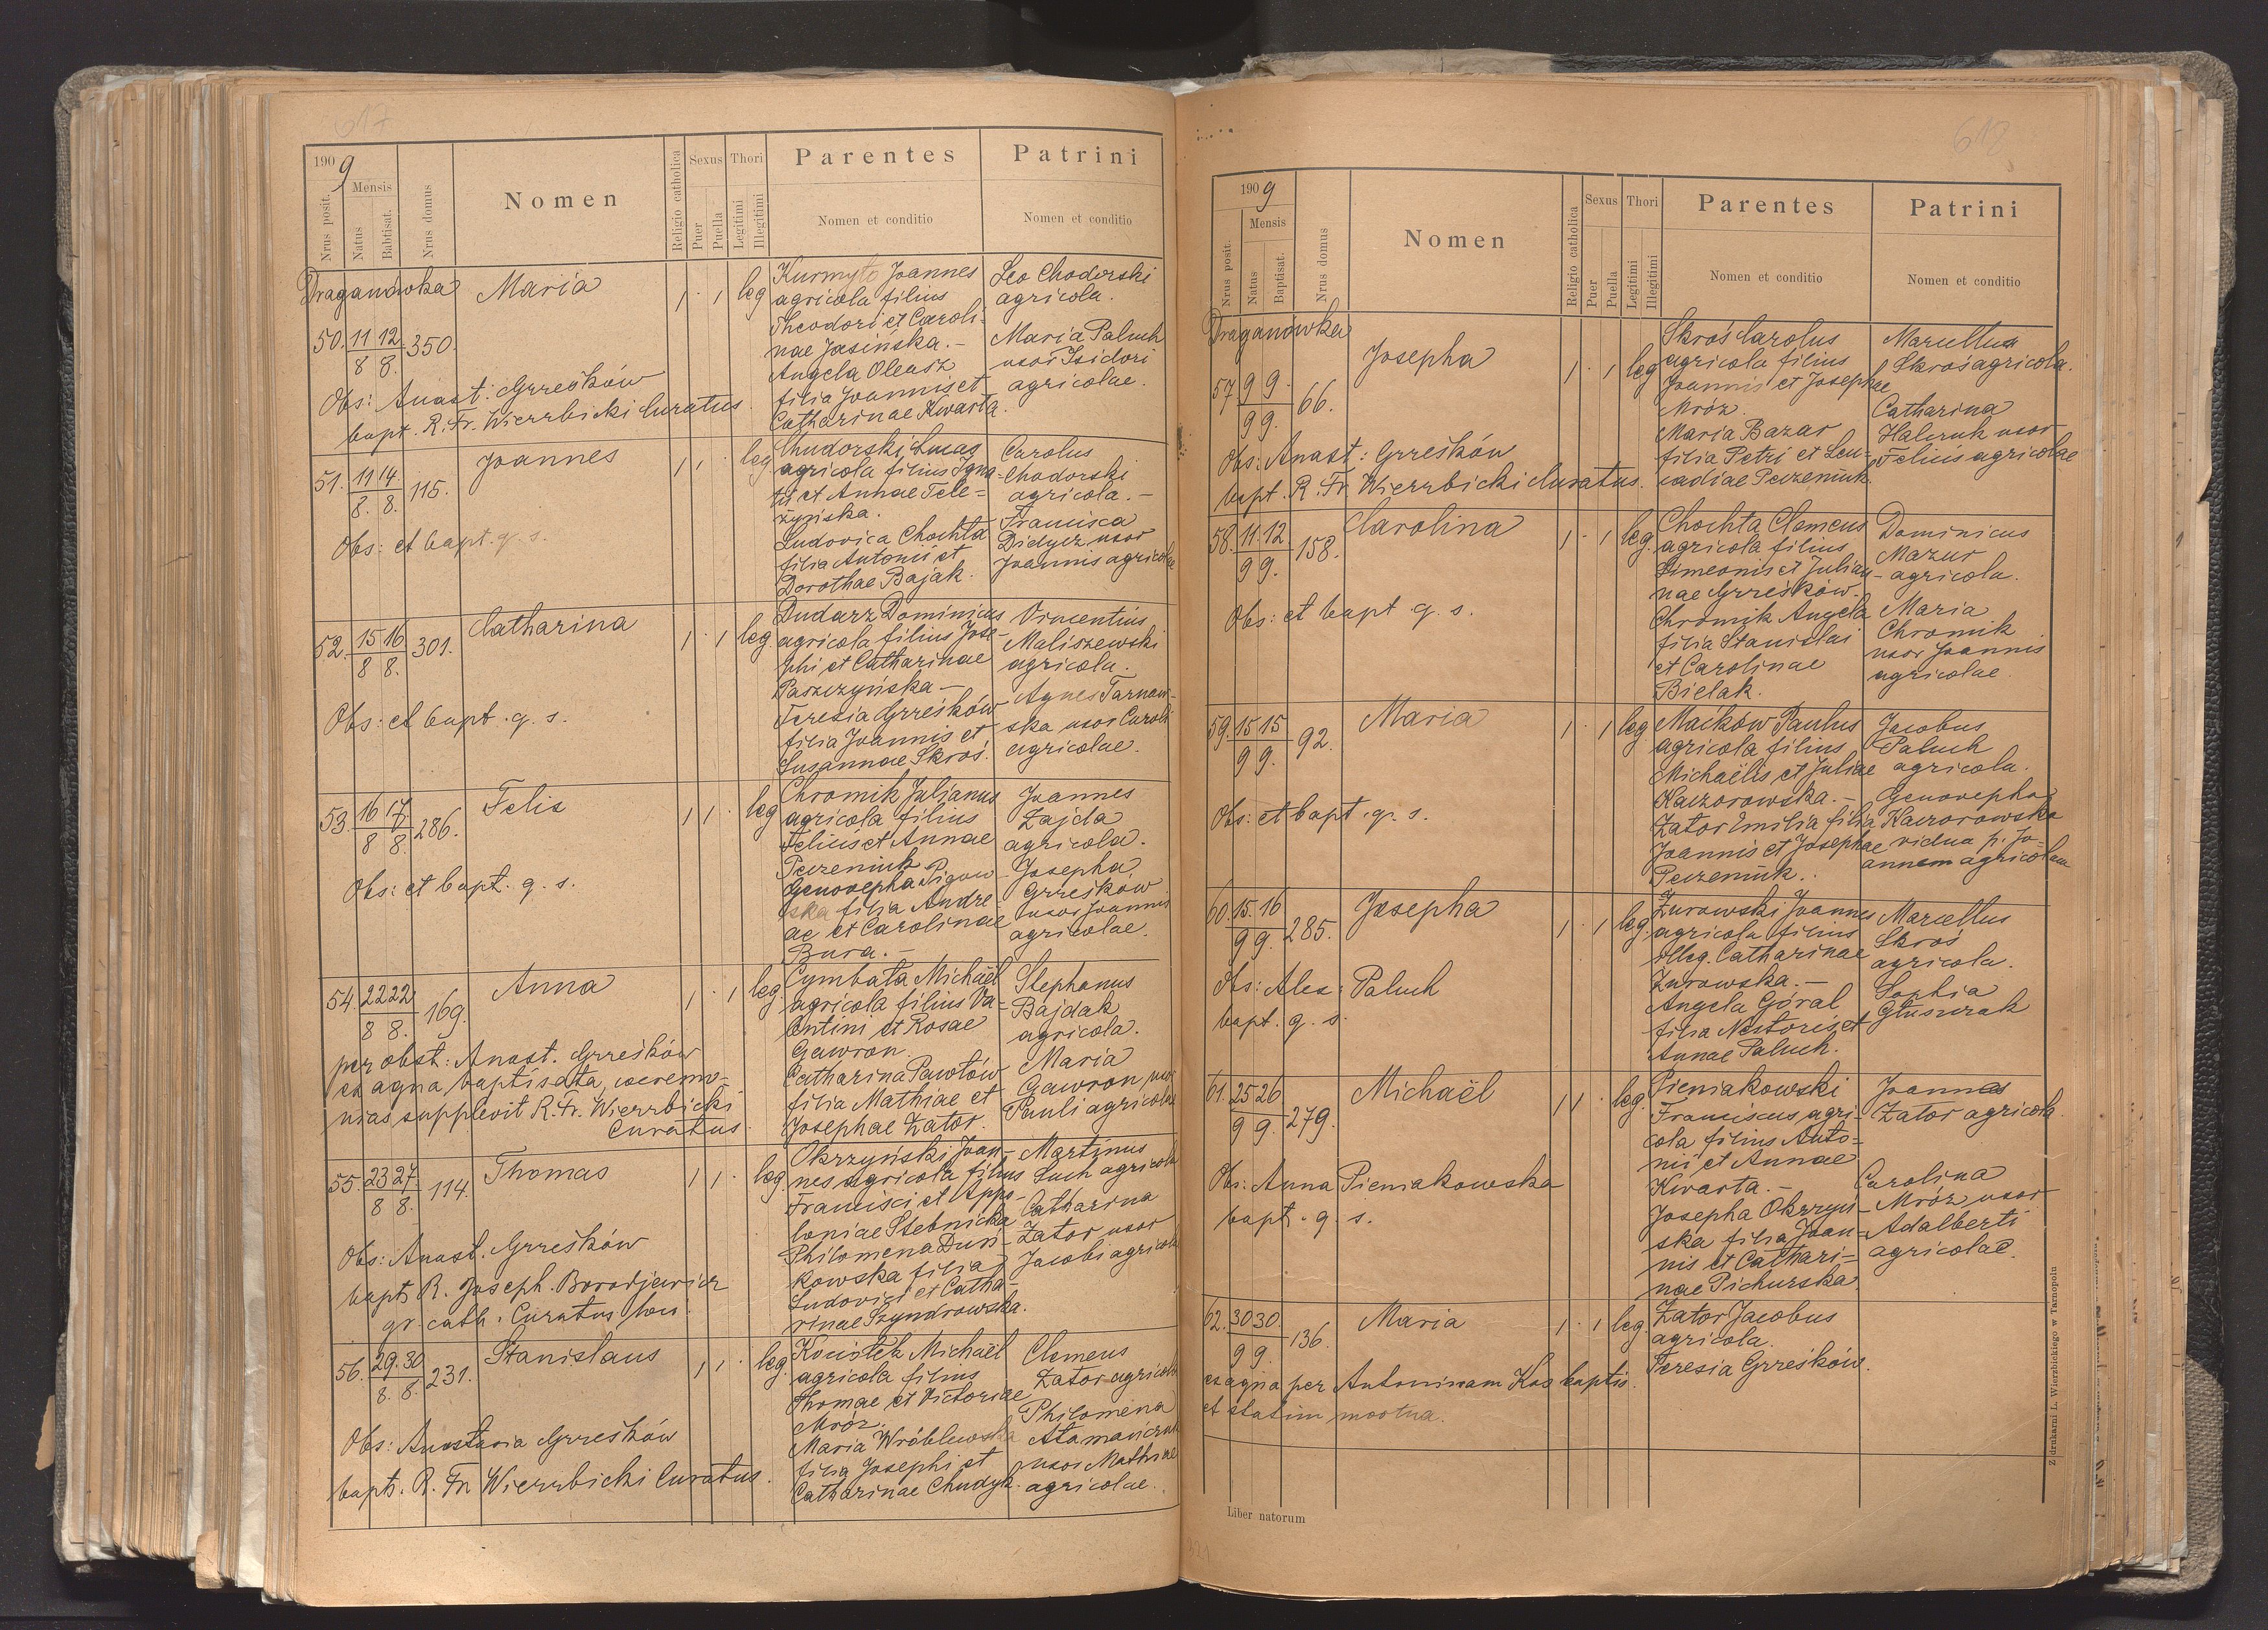 617
1909
Nrus posit.
Mensis
Natus
Babtisat.
Nrus domus
Nomen
Religio catholica
Sexus
Puer
Puella
Thori
Legitimi
Illegitimi
Parentes
Nomen et conditio
Patrini
Nomen et conditio
Draganówka
50. 11/8 12/8. 350.
Maria
1 · 1 leg
Kurmyło Joannes
agricola filius
Theodori et Caroli-
nae Jasińska. -
Angela Oleasz
filia Joannis et
Catharinae Kwarta.
Leo Chodorski
agricola.
Maria Paluch
uxor Isidori
agricolae.
Obs: Anast: Grześków
bapt. R. Fr. Wierzbicki Curatus.
51. 11/8. 14./8. 115.
Joannes
1 1 · leg
Chudorski Lucas
agricola filius Igna-
tii et Annae Tele=
żyńska.
Ludovica Chochta
filia Antonii et
Dorothae Bajak.
Carolus
Chodorski
agricola. -
Francisca
Didycz uxor
Joannis agricolae
Obs: et bapt. q. s.
52. 15/8 16/8. 301.
Catharina
1 · 1 leg
Dudarz Dominicus
agricola filius Jose-
phi et Catharinae
Paszczyńska -
Teresia Grześków
filia Joannis et
Susannae Skroś.
Vincentius
Maliszewski
agricola.
Agnes Tarnow-
ska uxor Caroli
agricolae.
Obs: et bapt. q. s.
53. 16/8 17/8. 286.
Felix
1 1 · leg
Chromik Julianus
agricola filius
Felicis et Annae
Peczeniuk
Genovepha Pigow-
ska filia Andre-
ae et Carolinae
Bura. -
Joannes
Zajda
agricola.
Josepha
Grześków
uxor Joannis
agricolae.
Obs: et bapt. q. s.
54. 22/8 22/8. 169.
Anna
1 · 1 leg
Cymbała Michaël
agricola filius Va-
lentini et Rosae
Gawron.
Catharina Pawłów
filia Mathiae et
Josephae Zator.
Stephanus
Bajdak
agricola.
Maria
Gawron uxor
Pauli agricolae
per obst: Anast. Grześków
ex aqua baptisata, ceremo-
nias supplevit R. Fr. Wierzbicki
Curatus.
55. 23/8 27/8. 114.
Thomas
1 1 · leg.
Okrzyński Joan-
nes agricola filius
Francisci et Appo-
loniae Stebnicka
Philomena Duń-
kowska filia
Ludovici et Catha-
rinae Szyndrowska.
Martinus
Such agricola
Catharina
Zator uxor
Jacobi agricolae
Obs: Anast. Grześków
bapt. R. Joseph. Borodjewicz
gr. cath. Curatus loci
56. 29./8. 30/8. 231.
Stanislaus
1 1 · leg.
Kocistek Michaël
agricola filius
Thomae et Victoriae
Mróz.
Maria Wróblewska
filia Josephi et
Catharinae Chudyk.
Clemens
Zator agricola
Philomena
Atamańczuk
uxor Mathiae
agricolae.
Obs: Anastasia Grześków
bapt. R. Fr. Wierzbicki Curatus.
612
1909
Nrus posit.
Mensis
Natus
Baptisat.
Nrus domus
Nomen
Religio catholica
Sexus
Puer
Puella
Thori
Legitimi
Illegitimi
Parentes
Nomen et conditio
Patrini
Nomen et conditio
Draganówka
57 9/9 9./9. 66.
Josepha
1 · 1 leg
Skroś Carolus
agricola filius
Joannis et Josephae
Mróz.
Maria Bazar
filia Petri et Leu-
cadiae Peczeniuk.
Marcellus
Skroś agricola.
Catharina
Halczuk uxor
Felicis agricolae
Obs: Anast: Grześków
bapt. R. Fr Wierzbicki Curatus.
58. 11/9 12/9. 158.
Carolina
1 · 1 leg.
Chochta Clemens
agricola filius
Simeonis et Julian-
nae Grześków.
Chromik Angela
filia Stanislai
et Carolinae
Bielak.
Dominicus
Mazur
agricola.
Maria
Chromik
uxor Joannis
agricolae.
Obs: et bapt. q. s.
59. 15/9 15/9. 92.
Maria
1 · 1 leg
Maćków Paulus
agricola filius
Michaëlis et Juliae
Kaczorowska. -
Zator Emilia filia
Joannis et Josephae
Peczeniuk.
Jacobus
Paluch
agricola.
Genovepha
Kaczorowska
vidua p. Jo-
annem agricolam
Obs: et bapt. q. s.
60. 15./9 16/9. 285.
Josepha
1 · 1 leg.
Żurowski Joannes
agricola filius
illeg. Catharinae
Żurowska. -
Angela Góral
filia Nestoris et
Annae Paluch.
Marcellus
Skroś
agricola.
Sophia
Głuszczak
Obs: Alex: Paluch
bapt. q. s.
61. 25/9 26/9. 279.
Michaël
1 1 · leg.
Pieniakowski
Franciscus agri-
cola filius Anto=
nii et Annae
Kwarta. -
Josepha Okrzyń-
ska filia Joan=
nis et Cathari=
nae Pichurska
Joannes
Zator agricola.
Carolina
Mróz uxor
Adalberti
agricolae.
Obs: Anna Pieniakowska
bapt. q. s.
62. 30/9 30./9. 136.
Maria
1 · 1 leg.
Zator Jacobus
agricola.
Teresia Grześków.
ex aqua per Antoninam Kos baptis.
et statim mortua.
Liber natorum
Z drukarni L. Wierzbickiego w Tarnopolu
321